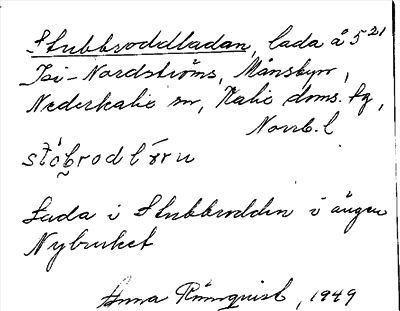 Stubbroddladan, lada å 5²¹
Isi-Nordströms, Månsbyn,
Nederkalix sn, Kalix doms. fg,
Norrb. l
stóbrodlǫru
Lada i Stubbrodden i ängen
Nybruket
Anna Rönnquist, 1949